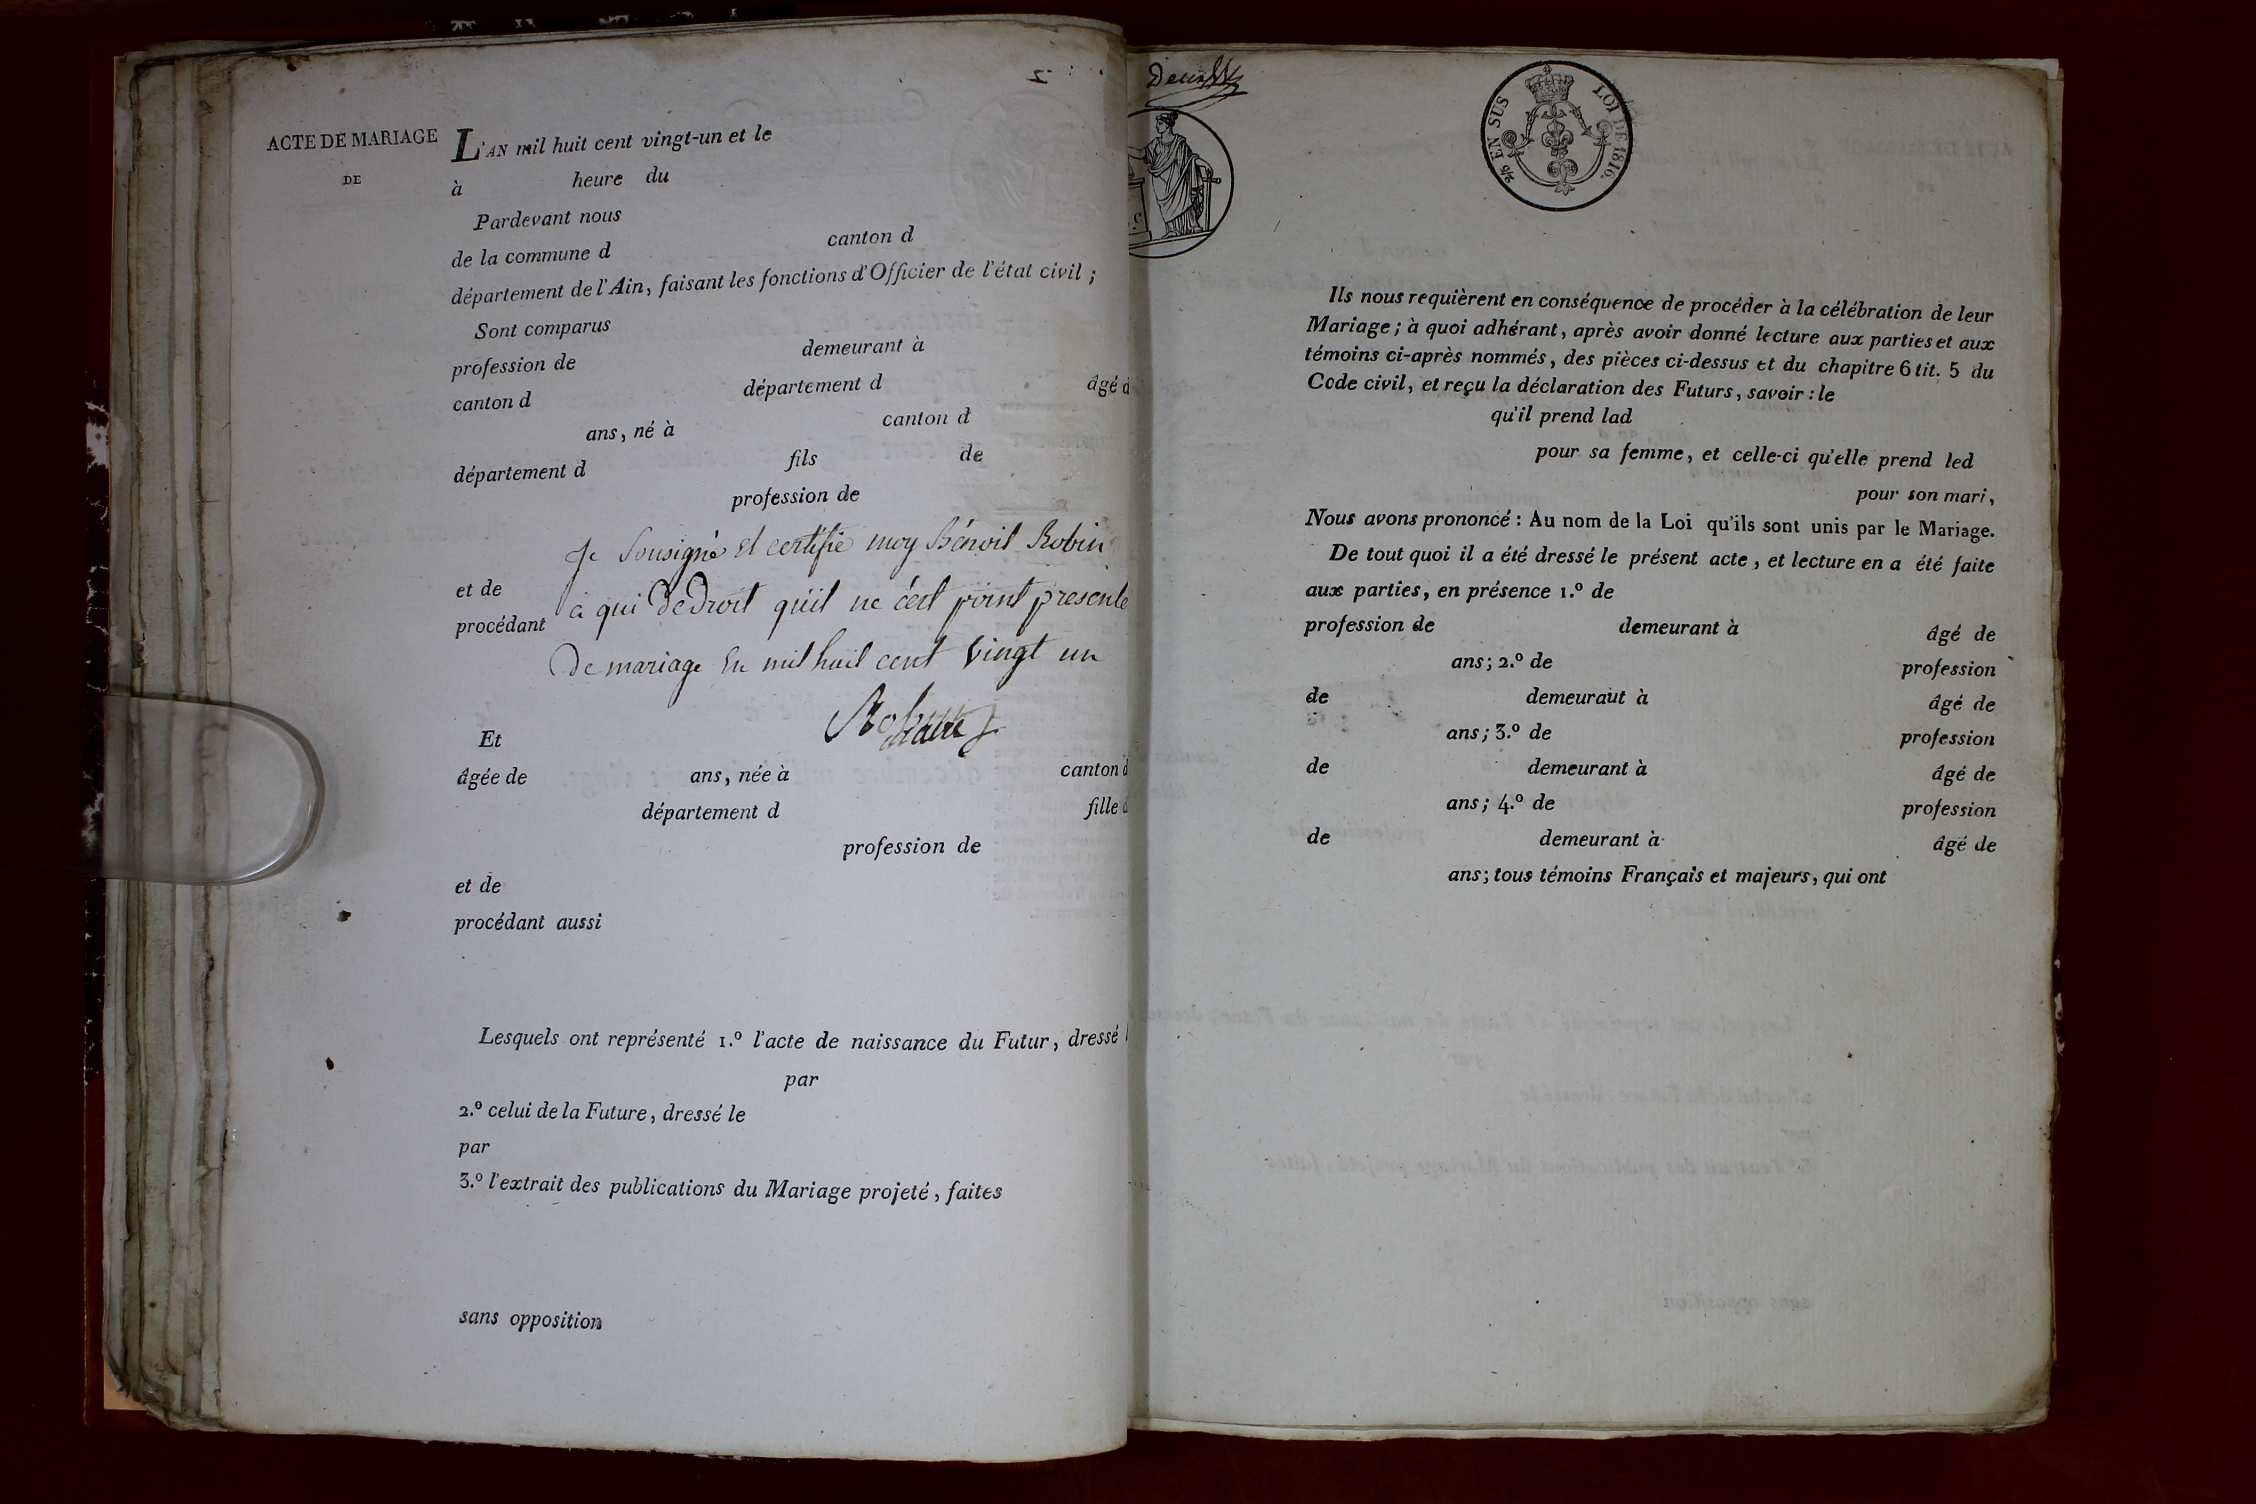 ACTE DE MARIAGE
DE
L'AN mil huit cent vingt-un et le
à heure du
Pardevant nous
de la commune d canton d
département de l'Ain, faisant les fonctions d'Officier de l'état civil ;
Sont comparus
profession de demeurant à
canton d département d âgé d
ans, né à canton d
département d fils de
profession de
Je Sousigné et certifie moy Bénoit Robin
et de
à qui de Droit qu'il ne c'est point presente
procédant
De mariage En mil huit cent vingt un
Robin
maire
Et
âgée de ans, née à canton d
département d fille
profession de
et de
procédant aussi
Lesquels ont représenté 1.º l'acte de naissance du Futur, dressé
par
2.º celui de la Future, dressé le
par
3.º l'extrait des publications du Mariage projeté, faites
sans opposition
2/5 EN SUS LOI DE 1816.
Ils nous requièrent en conséquence de procéder à la célébration de leur
Mariage ; à quoi adhérant, après avoir donné lecture aux parties et aux
témoins ci-après nommés, des pièces ci-dessus et du chapitre 6 tit. 5 du
Code civil, et reçu la déclaration des Futurs, savoir : le
qu'il prend lad
pour sa femme, et celle-ci qu'elle prend led
pour son mari,
Nous avons prononcé : Au nom de la Loi qu'ils sont unis par le Mariage.
De tout quoi il a été dressé le présent acte, et lecture en a été faite
aux parties, en présence 1.º de
profession de demeurant à âgé de
ans ; 2.º de profession
de demeuraut à âgé de
ans ; 3.º de profession
de demeurant à âgé de
ans ; 4.º de profession
de demeurant à âgé de
ans ; tous témoins Français et majeurs, qui ont